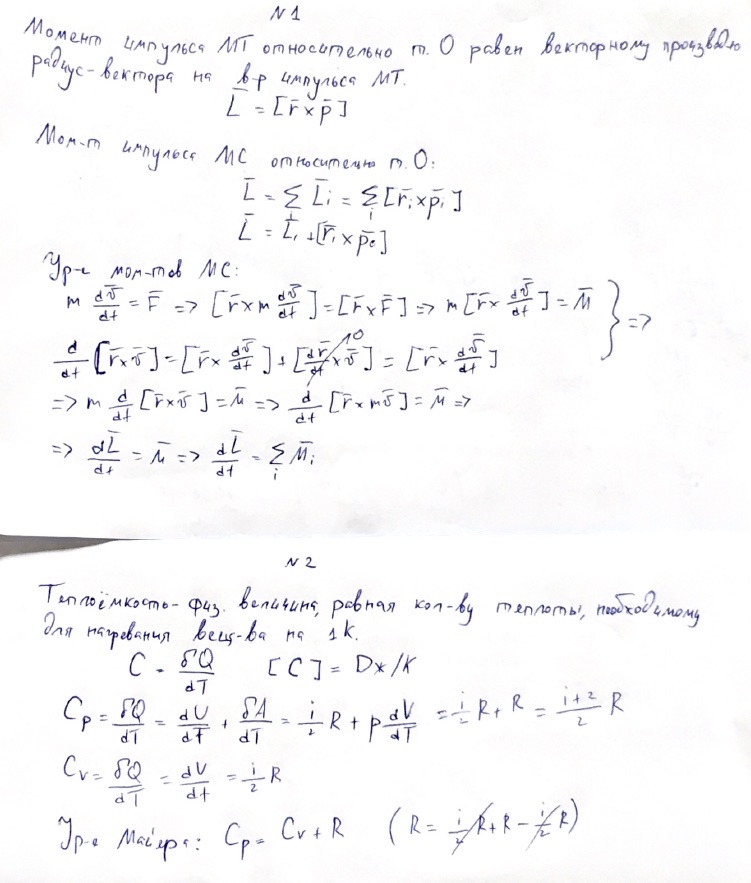 N1
Момент импульса МТ относительно т. О равен векторному произведю
радиус-вектора на в-р импульса МТ.
L̄ = [r̄ × p̄]
Мом-т импульса МС относительно т. О:
L̄ = Σᵢ L̄ᵢ = Σᵢ [r̄ᵢ × p̄ᵢ]
L̄ = L̄ᵢ + [r̄ᵢ × p̄c]
Ур-е мом-тов МС:
m dv̄/dt = F̄ => [r̄ × m dv̄/dt] = [r̄ × F̄] => m [r̄ × dv̄/dt] = M̄ } =>
d/dt [r̄ × v̄] = [r̄ × dv̄/dt] + [dr̄/dt × v̄] 0 = [r̄ × dv̄/dt]
=> m d/dt [r̄ × v̄] = M̄ => d/dt [r̄ × mv̄] = M̄ =>
=> dL̄/dt = M̄ => dL̄/dt = Σᵢ M̄ᵢ
N2
Теплоёмкость - физ. величина, равная кол-ву теплоты, необходимому
для нагревания вещ-ва на 1К.
C = δQ/dT [C] = Дж/К
Cp = δQ/dT = dU/dT + δA/dT = i/2 R + p dV/dT = i/2 R + R = i+2/2 R
Cv = δQ/dT = dV/dt = i/2 R
Ур-е Майера: Cp = Cv + R (R = i/2 R + R - i/2 R)